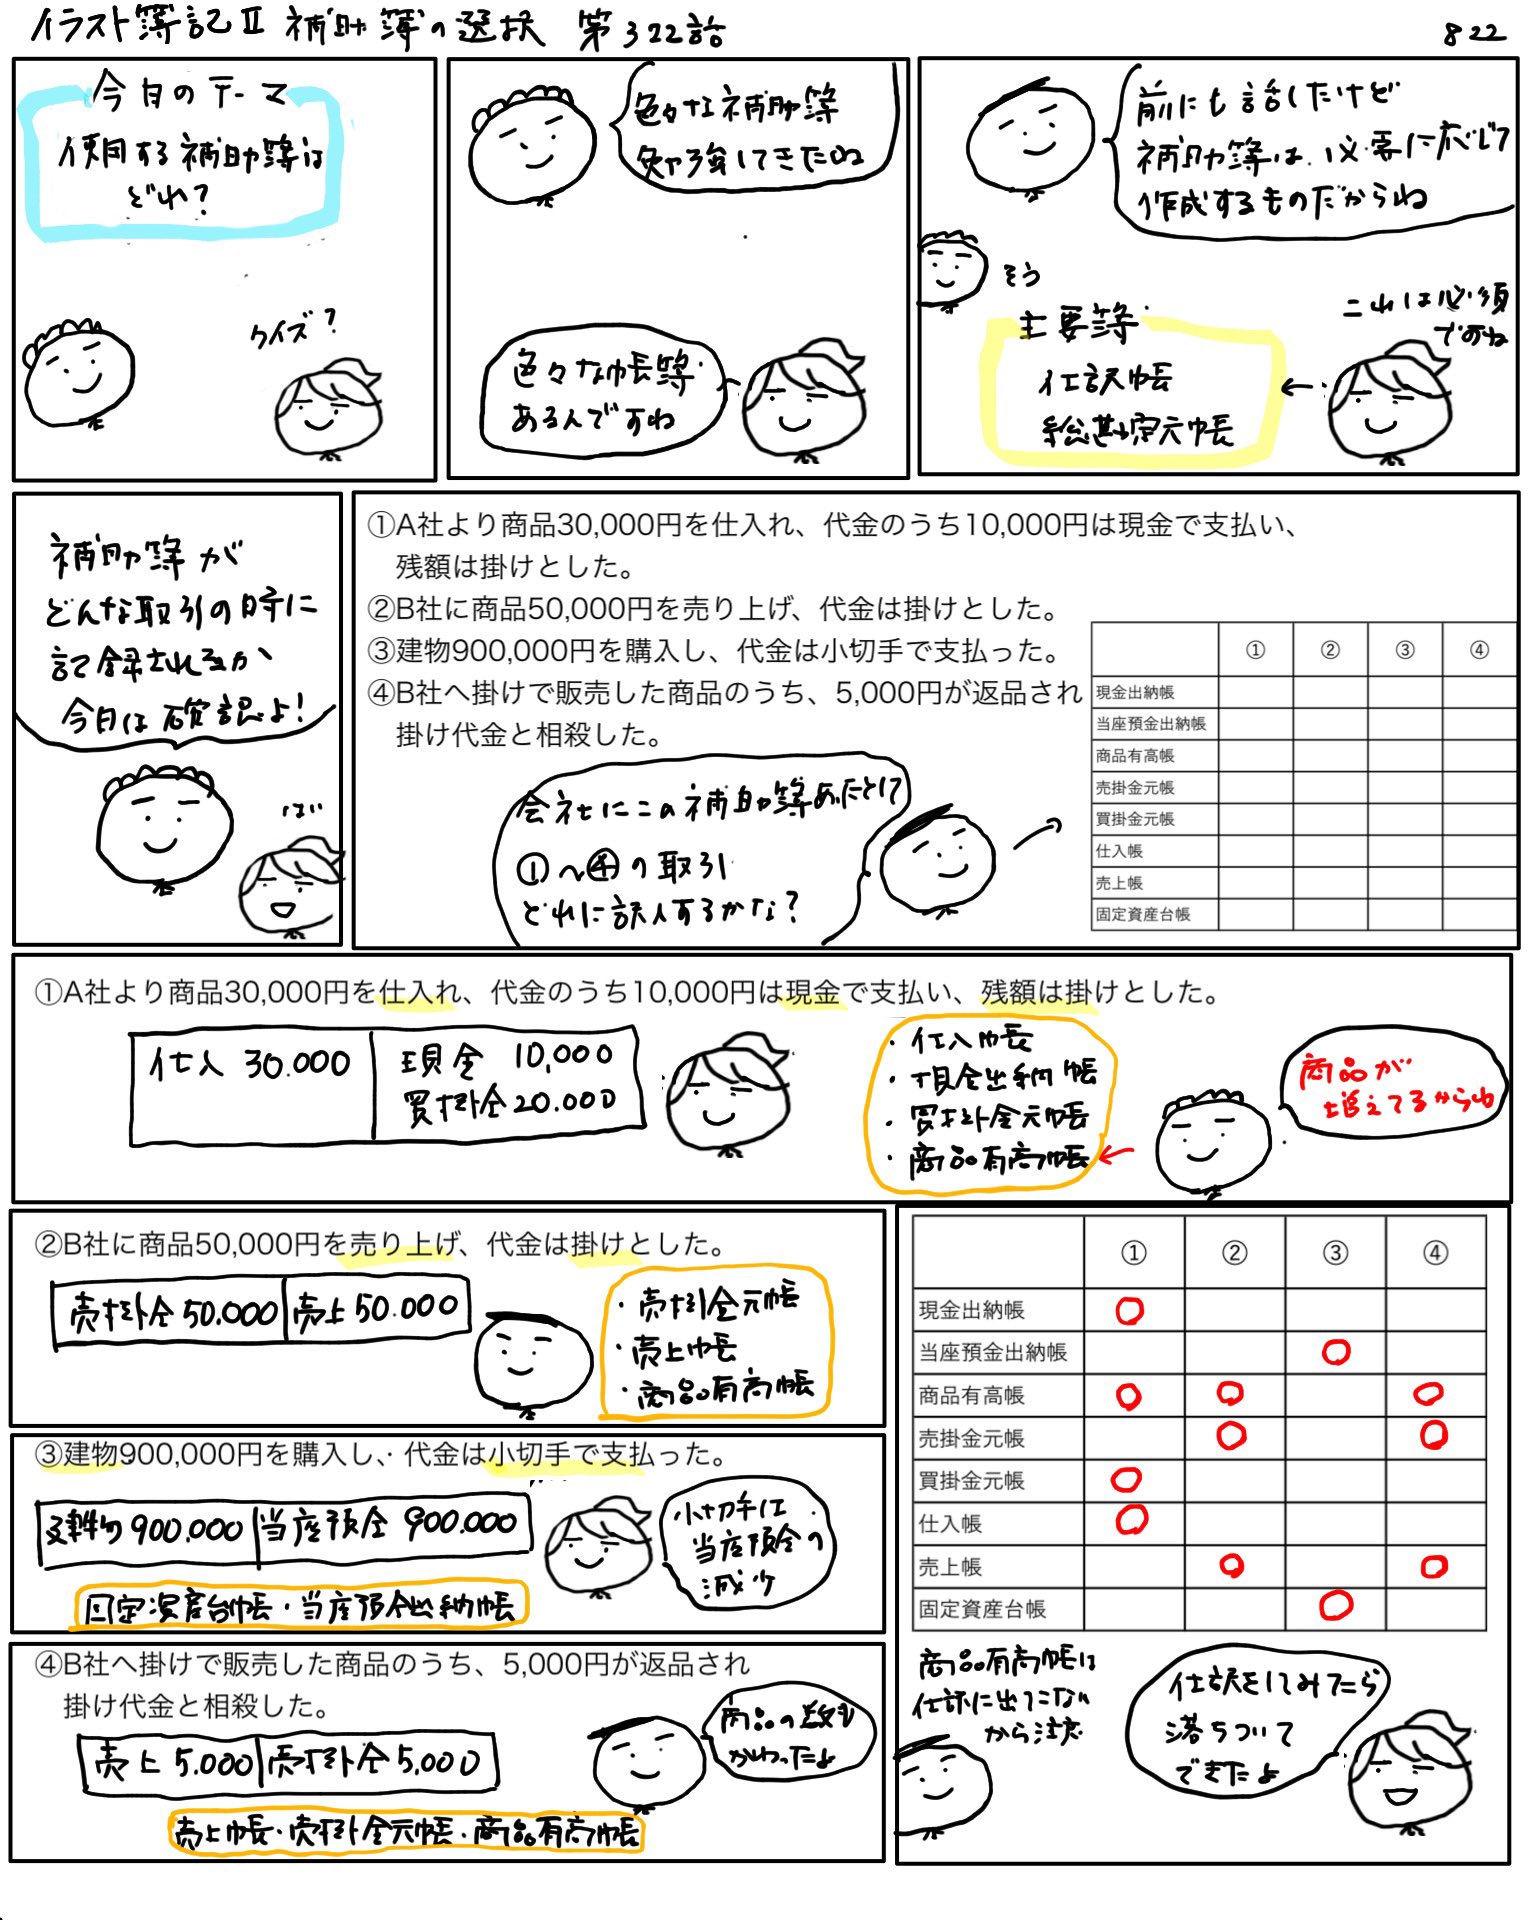 イラスト簿記Ⅱ 補助簿の選択 第322話
822
今日のテーマ
使用する補助簿は
どれ?
クイズ?
色々な補助簿
勉強してきたね
色々な帳簿
あるんですね
前にも話したけど
補助簿は必要に応じて
作成するものだからね
そう
主要簿
仕訳帳
総勘定元帳
これは必須
ですね
補助簿が
どんな取引の時に
記録されるか
今日は確認よ!
はい
①A社より商品30,000円を仕入れ、代金のうち10,000円は現金で支払い、
残額は掛けとした。
②B社に商品50,000円を売り上げ、代金は掛けとした。
③建物900,000円を購入し、代金は小切手で支払った。
④B社へ掛けで販売した商品のうち、5,000円が返品され
掛け代金と相殺した。
会社にこの補助簿あったとして
①〜④の取引
どれに記入するかな?
① ② ③ ④
現金出納帳
当座預金出納帳
商品有高帳
売掛金元帳
買掛金元帳
仕入帳
売上帳
固定資産台帳
①A社より商品30,000円を仕入れ、代金のうち10,000円は現金で支払い、残額は掛けとした。
仕入 30.000 現金 10,000
買掛金 20.000
・仕入帳
・現金出納帳
・買掛金元帳
・商品有高帳
商品が
増えてるからね
②B社に商品50,000円を売り上げ、代金は掛けとした。
売掛金 50.000 売上 50.000
・売掛金元帳
・売上帳
・商品有高帳
③建物900,000円を購入し、代金は小切手で支払った。
建物 900.000 当座預金 900.000
小切手は
当座預金の
減少
固定資産台帳・当座預金出納帳
④B社へ掛けで販売した商品のうち、5,000円が返品され
掛け代金と相殺した。
売上 5.000 売掛金 5,000
商品の数も
かわったよ
売上帳・売掛金元帳・商品有高帳
① ② ③ ④
現金出納帳 ○
当座預金出納帳 ○
商品有高帳 ○ ○ ○
売掛金元帳 ○ ○
買掛金元帳 ○
仕入帳 ○
売上帳 ○ ○
固定資産台帳 ○
商品有高帳は
仕訳に出てこない
から注意
仕訳をしてみたら
落ちついて
できたよ